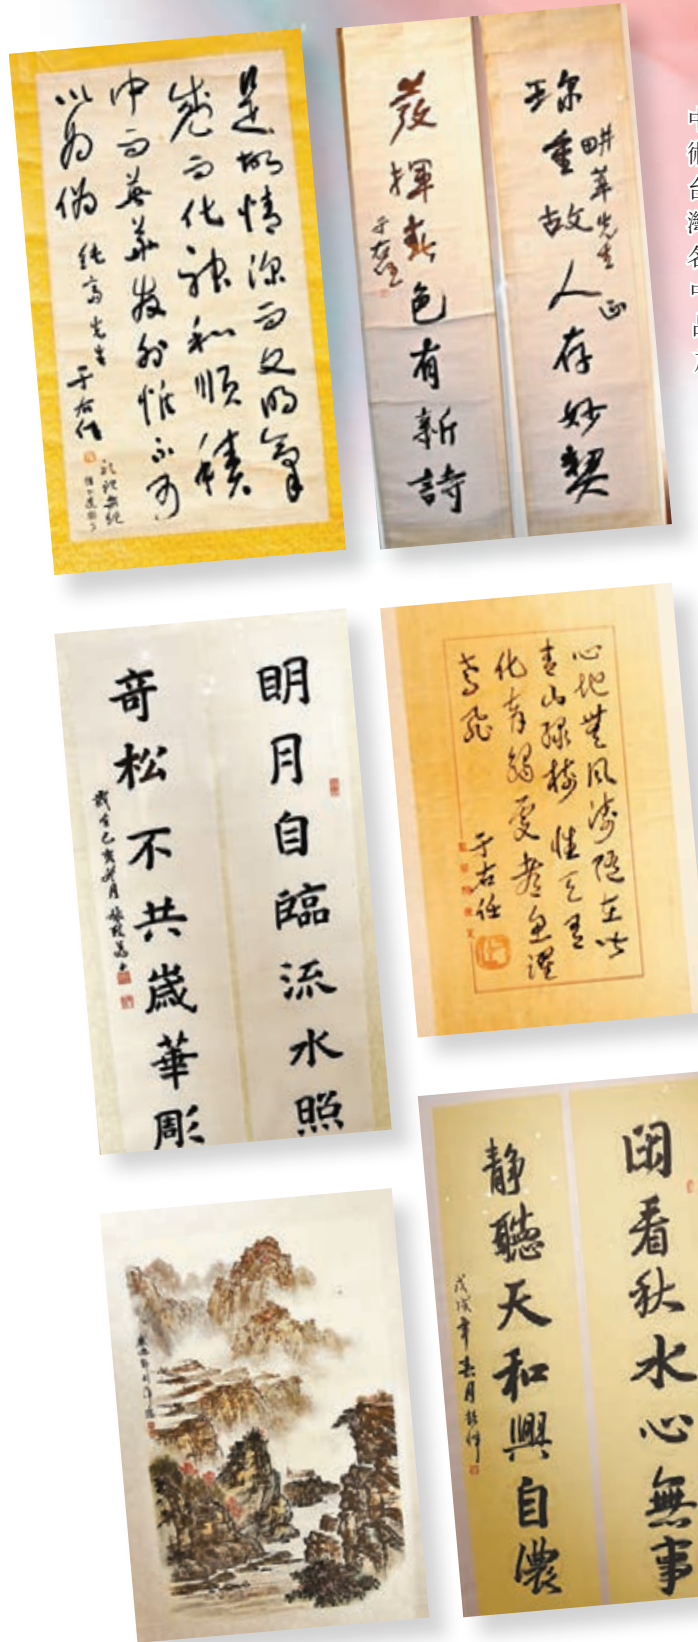 是故情深而文明氣
盛而化神和順積
中而英華發外惟不可
以為偽
純高先生
于右任
珍重故人存妙契
畊莘先生正
發揮春色有新詩
于右任
明月自臨流水照
奇松不共歲華彫
心地無風濤隨在皆
青山綠樹性天有
化育觸處都魚躍
鳶飛
于右任
閒看秋水心無事
靜聽天和興自濃